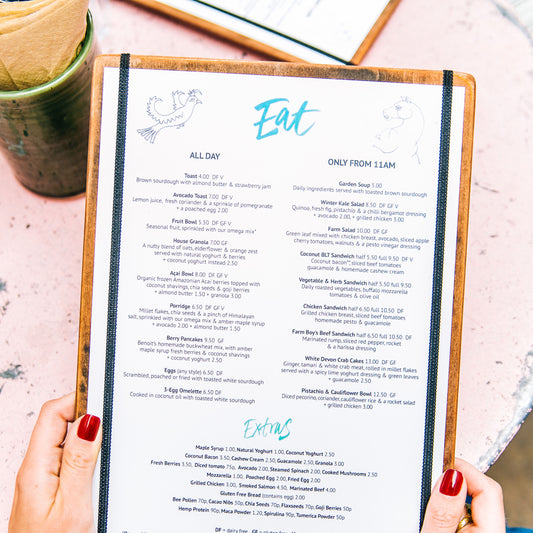 Eat
ALL DAY
Toast 4.00 DF V
Brown sourdough with almond butter & strawberry jam
Avocado Toast 7.00 DF V
Lemon juice, fresh coriander & a sprinkle of pomegranate
+ a poached egg 2.00
Fruit Bowl 5.50 DF GF V
Seasonal fruit, sprinkled with our omega mix*
House Granola 7.00 GF
A nutty blend of oats, elderflower & orange zest
served with natural yoghurt & berries
+ coconut yoghurt instead 2.50
Açai Bowl 8.00 DF GF V
Organic frozen Amazonian Açai berries topped with
coconut shavings, chia seeds & goji berries
+ almond butter 1.50 + granola 3.00
Porridge 6.50 DF GF V
Millet flakes, chia seeds & a pinch of Himalayan
salt, sprinkled with our omega mix & amber maple syrup
+ avocado 2.00 + almond butter 1.50
Berry Pancakes 9.50 GF
Benoit's homemade buckwheat mix, with amber
maple syrup fresh berries & coconut shavings
+ coconut yoghurt 2.50
Eggs (any style) 6.50 DF
Scrambled, poached or fried with toasted white sourdough
3-Egg Omelette 6.50 DF
Cooked in coconut oil with toasted white sourdough
ONLY FROM 11AM
Garden Soup 5.00
Daily ingredients served with toasted brown sourdough
Winter Kale Salad 8.50 DF GF V
Quinoa, fresh fig, pistachio & a chilli bergamot dressing
+ avocado 2.00, + grilled chicken 3.00
Farm Salad 10.00 DF GF
Green leaf mixed with chicken breast, avocado, sliced apple
cherry tomatoes, walnuts & a pesto vinegar dressing
Coconut BLT Sandwich half 5.50 full 9.50 DF V
Coconut bacon**, sliced beef tomatoes
guacamole & homemade cashew cream
Vegetable & Herb Sandwich half 5.50 full 9.50
Daily roasted vegetables, buffalo mozzarella
tomatoes & olive oil
Chicken Sandwich half 6.50 full 10.50 DF
Grilled chicken breast, sliced beef tomatoes
homemade pesto & guacamole
Farm Boy's Beef Sandwich half 6.50 full 10.50
Marinated rump, sliced red pepper, rocket
& a harissa dressing
White Devon Crab Cakes 13.00 DF GF
Ginger, tamari & white crab meat, rolled in millet flakes
served with a spicy lime yoghurt dressing & green leaves
+ guacamole 2.50
Pistachio & Cauliflower Bowl 12.50 GF
Sliced pecorino, coriander, cauliflower rice & a rocket salad
+ grilled chicken 3.00
Extras
Maple Syrup 1.00, Natural Yoghurt 1.00, Coconut Yoghurt 2.50
Coconut Bacon 2.50, Cashew Cream 2.50, Guacamole 2.50, Granola 3.00
Fresh Berries 3.50, Diced tomato 75g, Avocado 2.00, Steamed Spinach 2.00, Cooked Mushrooms 2.50
Mozzarella 1.00, Poached Egg 2.00, Fried Egg 2.00
Grilled Chicken 3.00, Smoked Salmon 4.50, Marinated Beef 4.00
Gluten Free Bread (contains egg) 2.00
Bee Pollen 70p, Cacao Nibs 50p, Chia Seeds 70p, Flaxseeds 70p, Goji Berries 50p
Hemp Protein 90p, Maca Powder 1.20, Spirulina 90p, Tumerica Powder 50p
DF = dairy free GF =